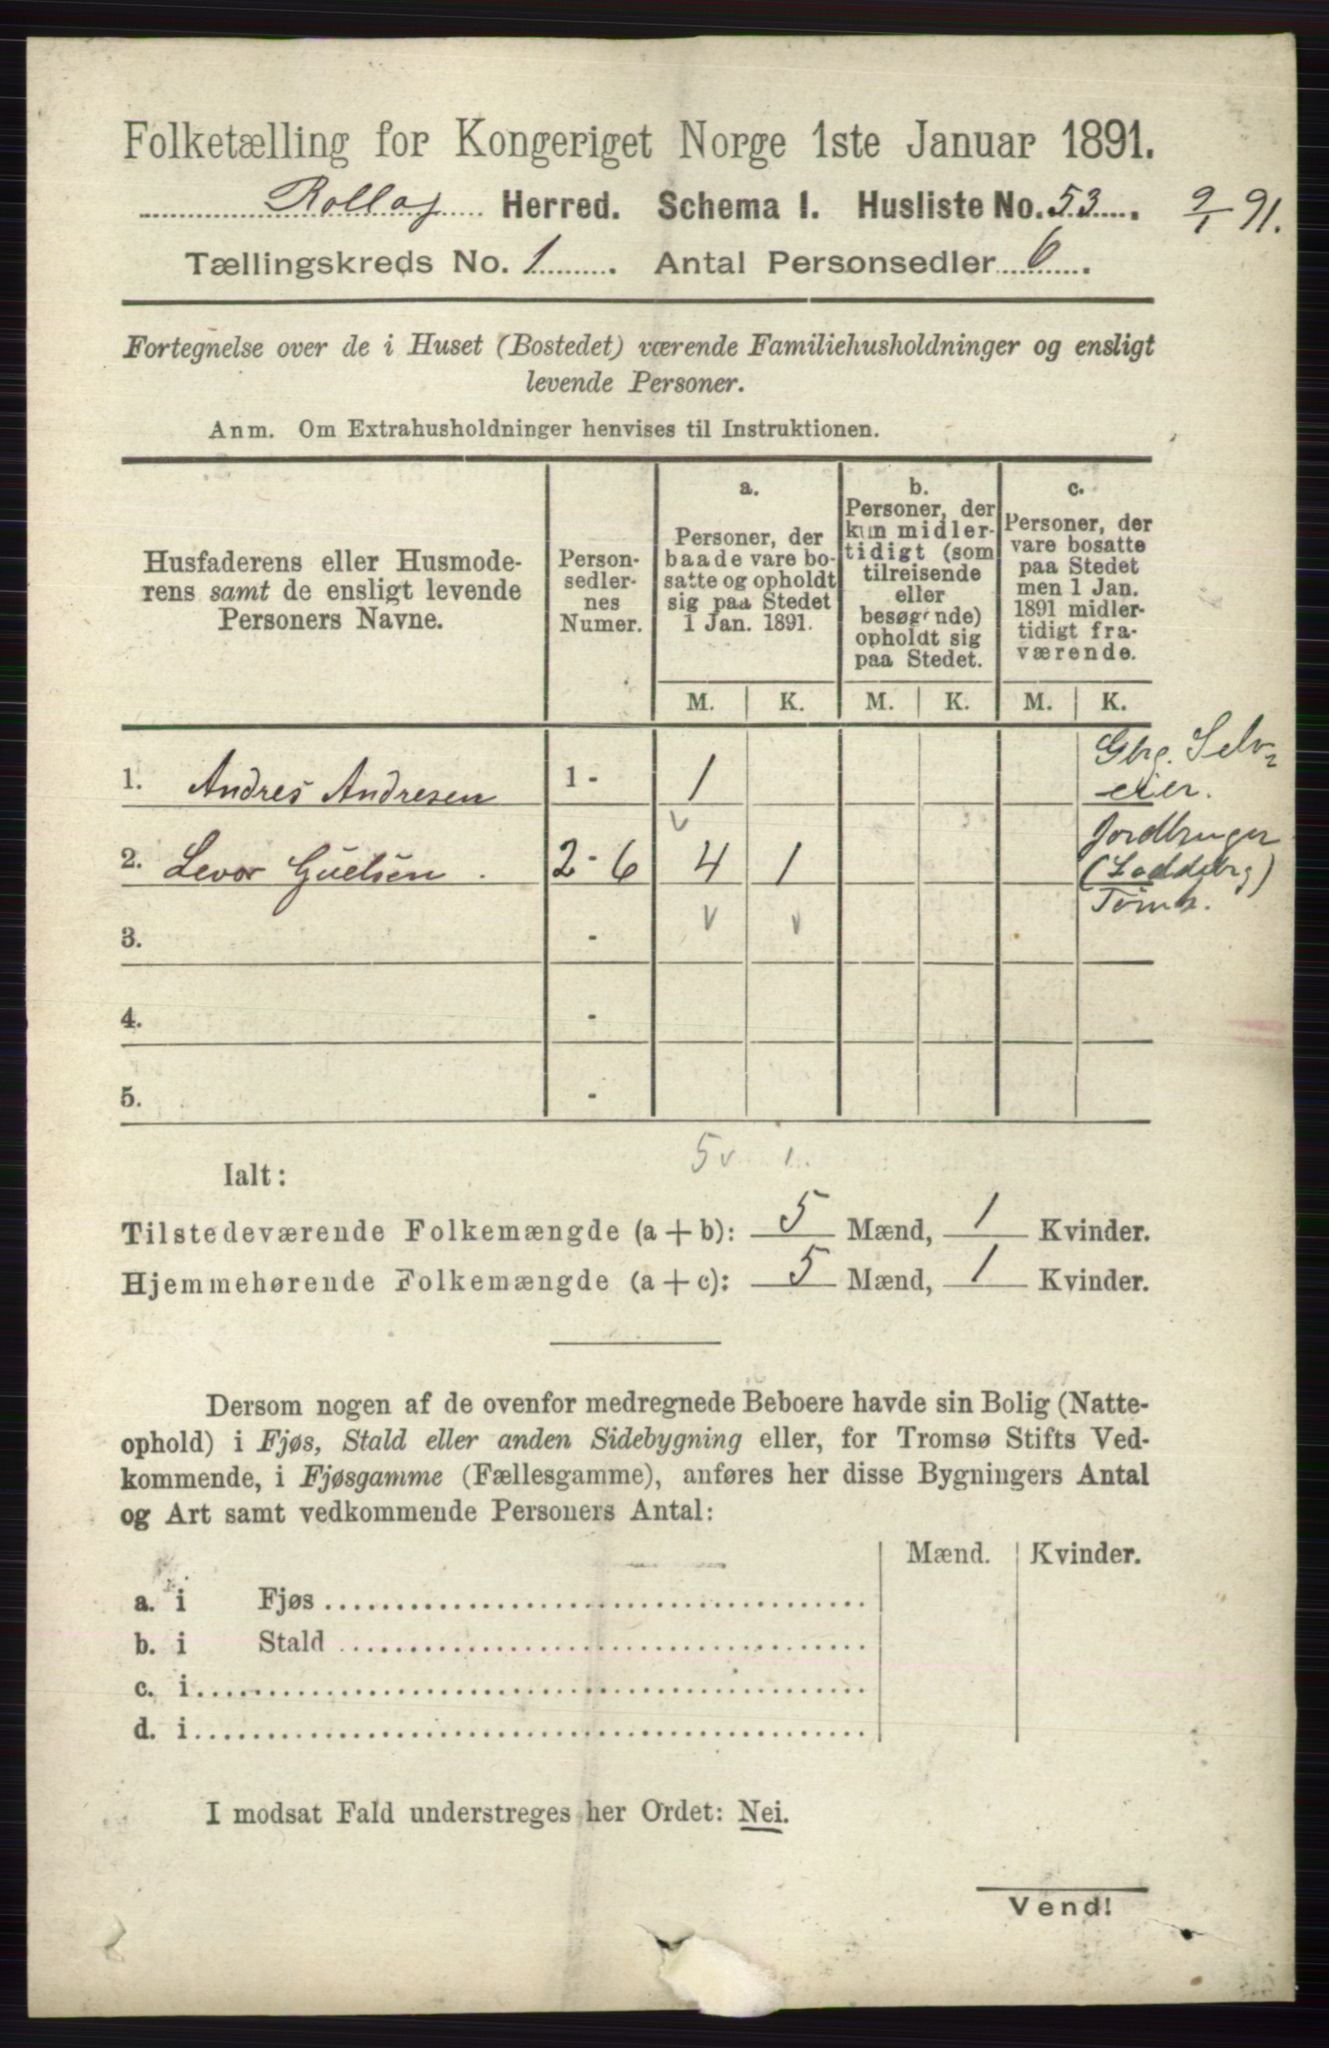 Folketælling for Kongeriget Norge 1ste Januar 1891.
Rollag Herred. Schema I. Husliste No. 53. 9/1 91.
Tællingskreds No. 1. Antal Personsedler 6.
Fortegnelse over de i Huset (Bostedet) værende Familiehusholdninger og ensligt
levende Personer.
Anm. Om Extrahusholdninger henvises til Instruktionen.
Husfaderens eller Husmode-
rens samt de ensligt levende
Personers Navne.
Person-
sedler-
nes
Numer.
a.
Personer, der
baade vare bo-
satte og opholdt
sig paa Stedet
1 Jan. 1891.
b.
Personer, der
kun midler-
tidigt (som
tilreisende
eller
besøgende)
opholdt sig
paa Stedet.
c.
Personer, der
vare bosatte
paa Stedet
men 1 Jan.
1891 midler-
tidigt fra-
værende.
M. K. M. K. M. K.
1. Andres Andresen 1 - 1 Gbr. Selv-
eier.
2. Levor Guelsen. 2 - 6 4 1 Jordbruger
3. -
4. -
5. -
5 v 1.
Ialt:
Tilstedeværende Folkemængde (a + b): 5 Mænd, 1 Kvinder.
Hjemmehørende Folkemængde (a + c): 5 Mænd, 1 Kvinder.
Dersom nogen af de ovenfor medregnede Beboere havde sin Bolig (Natte-
ophold) i Fjøs, Stald eller anden Sidebygning eller, for Tromsø Stifts Ved-
kommende, i Fjøsgamme (Fællesgamme), anføres her disse Bygningers Antal
og Art samt vedkommende Personers Antal:
Mænd. Kvinder.
a. i Fjøs
b. i Stald
c. i
d. i
I modsat Fald understreges her Ordet: Nei.
Vend!